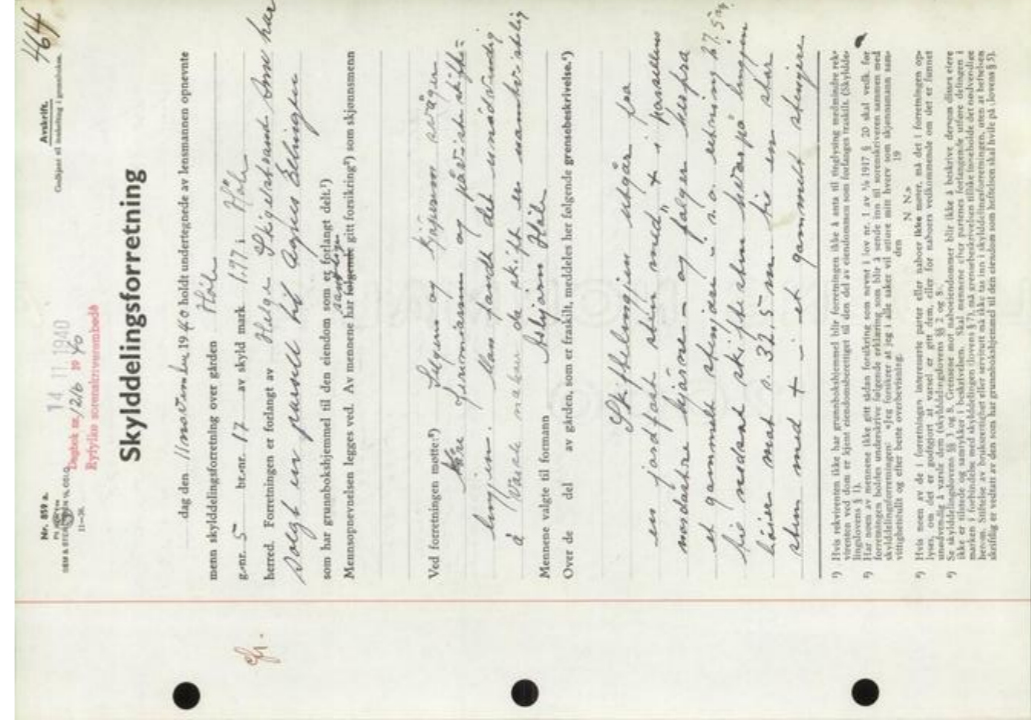 464
Avskrift.
Nr. 859 a.
14.11.1940
Dagbok nr. 1216 1940
Ryfylke sorenskriverembede
Skylddelingsforretning
dag den 11 november 1940 holdt undertegnede av lensmannen opnevnte
menn skylddelingsforretning over gården Höle
g.-nr. 5 br.-nr. 17 av skyld mark 1.97 i Höle
herred. Forretningen er forlangt av Helge som har
solgt en parsel til Agnus
som har grunnbokshjemmel til den eiendom som er forlangt delt.¹)
samtlige
Mennsopnevnelsen legges ved. Av mennene har følgende gitt forsikring²) som skjønnsmenn
cfr.
Ved forretningen møtte:³) Selgeren og kjöperen
og påviste skifte-
lingjen. Man fandt det unödvendig
å varsle naboer da skiftet er
Mennene valgte til formann Asbjörn Höle
Over de del av gården, som er fraskilt, meddeles her følgende grensebeskrivelse.⁴)
Skiftelingjen utgår fra
en jordfast stein med + i parsellens
nordöstre hjörne – og fölger herfra
et gammelt steingjerde i s.o. retning 27.5 m
til nedsat skiftestein hvorpå lingjen
böier mot s. 32.5 m. til en stor
stein med + i et gammelt steingjere
¹) Hvis rekvirenten ikke har grunnbokshjemmel blir forretningen ikke å anta til tinglysning medmindre rek-
virenten ved dom er kjent eiendomsberettiget til den del av eiendommen som forlanges fraskilt. (Skylddel-
ingslovens § 1).
²) Har noen av mennene ikke gitt sådan forsikring som nevnt i lov nr. 1 av 1917 § 20 skal vedk. før
forretningen holdes underskrive følgende erklæring som blir å sende inn til sorenskriveren sammen med
skylddelingsforretningen: «Jeg forsikrer at jeg i alle saker vil utføre mitt hverv som skjønnsmann sam-
vittighetsfullt og efter beste overbevisning.
den 19
N. N.»
³) Hvis noen av de i forretningen interesserte parter eller naboer ikke møter, må det i forretningen op-
lyses, om det er godtgjort at varsel er gitt dem, eller for naboers vedkommende om det er funnet
unødvendig å varsle dem (skylddelingslovens §§ 2 og 8).
⁴) Se skylddelingslovens §§ 3 og 8. Grensene mot naboeiendommer blir ikke å beskrive dersom disses eiere
ikke er tilstede og samtykker i beskrivelsen. Skal mennene efter partenes forlangende utføre delingen i
marken i forbindelse med skylddelingen (lovens § 7), må grensebeskrivelsen tillike inneholde det nødvendige
herom. Stiftelse av bruksrettighet eller servitutt må ikke tas inn i skylddelingsforretningen, uten at heftelsen
skriftlig er vedtatt av den som har grunnbokshjemmel til den eiendom som heftelsen skal hvile på (lovens § 5).